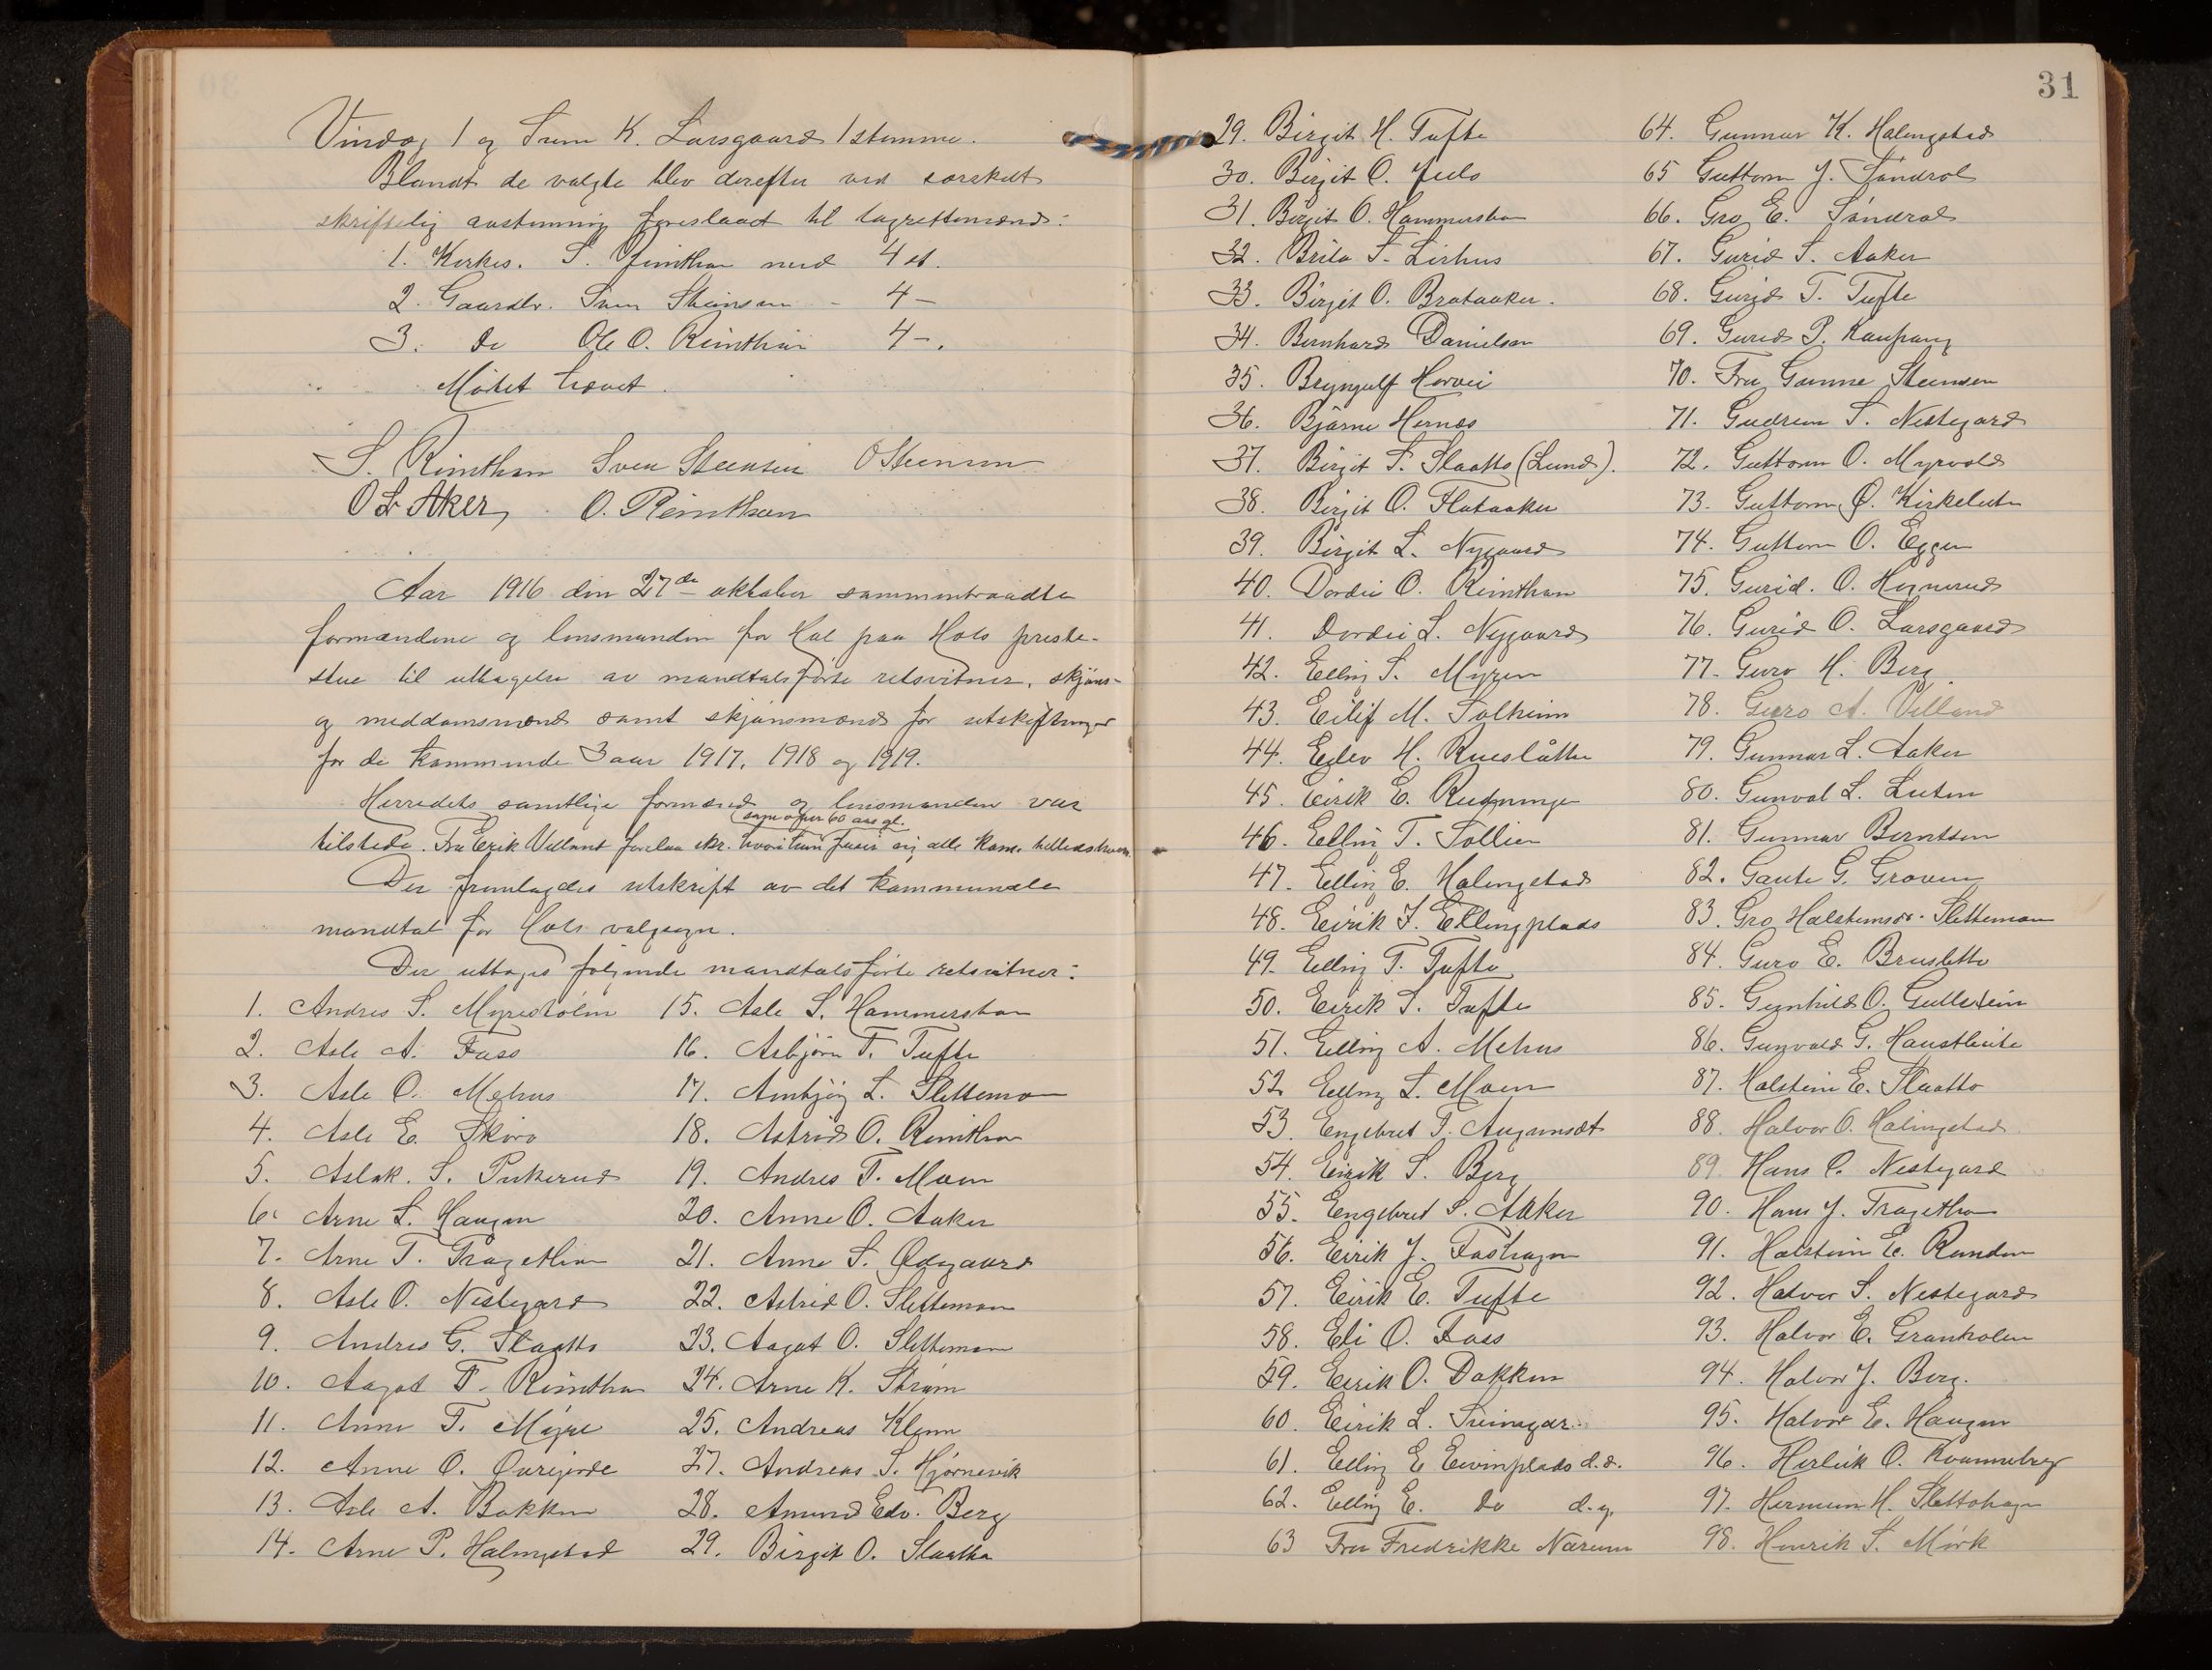 Vindeg 1 og Sven K. Larsgaard 1 stemme.
Blandt de valgte blev derefter ved særskilt
skriftelig avstemning foreslaat til lagrettemænd:
1. Kirkes. S. Reinthon med 4 st.
2. Gaardbr. Sven Steinsen - 4 -
3. Do Ole O. Reinthon 4 -.
Møtet hævet.
S. Rimthon Sven Steensen O Steensen
O L Aker, O. Reinthon
Aar 1916 den 27de oktober sammentraadte
formændene og lensmanden for Hol paa Hols preste-
stue til uttagelse av mandtalsførte retsvitner, skjøns-
og meddomsmænd samt skjønsmænd for utskiftninger
for de kommende 3 aar 1917, 1918 og 1919.
Herredets samtlige formænd og lensmanden var
som over 60 aar gl.
tilstede. Fra Erik Villand forelaa skr. hvori han alle kom. tillidshverv.
Der fremlagdes utskrift av det kommunale
mandtal for Hols valgsogn.
Der uttoges følgende mandtalsførte retsvitner:
1. Andres S. Myrestølen
2. Asle A. Foss
3. Asle O. Mehus
4. Asle E. Skoro
5. Aslak. S. Pukerud
6. Arne L. Haugen
7. Arne T. Tragethon
8. Asle O. Nestegard
9. Andres G. Slaatto
10. Aagot T. Reinthon
11. Anne T. Myre
12. Anne O. Øvrejorde
13. Asle A. Bakken
14. Arne P. Halingstad
15. Asle S. Hammersbøen
16. Asbjørn T. Tufte
17. Ambjøg L. Slettemoen
18. Astrid O. Reinthon
19. Andres T. Moen
20. Anne O. Aaker
21. Anne S. Ødegaard
22. Astrid O. Slettemoen
23. Aagot O. Slettemoen
24. Arne K. Strøm
25. Andreas Klenn
27. Andreas S. Hjørnevik
28. Amund Edv. Berg
29. Birgit O. Slaatto
31
29. Birgit H. Tufte
30. Birgit O. Juelo
31. Birgit O. Hammersbøen
32. Brita T. Lirhus
33. Birgit O. Brataaker.
34. Bernhard Danielsen
35. Bryngulf Hervei
36. Bjarne Hernæs
37. Birgit T. Slaatto (Lund).
38. Birgit O. Flataaker
39. Birgit L. Nygaard
40. Dordei O. Reinthon
41. Dordei L. Nygaard
42. Elling S. Myren
43. Eilif M. Solheim
44. Eilev H. Rueslåtten
45. Eirik E. Rudningen
46. Elling T. Sollien
47. Elling E. Halingstad
48. Eirik T. Ellingplads
49. Elling T. Tufte
50. Eirik S. Tufte
51. Elling A. Mehus
52. Elling L. Moen
53. Engebret T. Augunset
54. Eirik S. Berg
55. Engebret S. Aaker
56. Eirik J. Foshagen
57. Eirik E. Tufte
58. Eli O. Foss
59. Eirik O. Dokken
60. Eirik L. Sveinsgar
61. Elling E Eivinplads d.e.
62. Elling E. do d.y.
63 Fru Fredrikke Nærum
64. Gunnar K. Halingstad
65 Guttorm J. Søndrol
66. Gro E. Søndrol
67. Gurid S. Aaker
68. Gurid T. Tufte
69. Gurid P. Kaupang
70. Fru Gunne Steensen
71. Gudrun S. Nestegard
72. Guttorm O. Myrvold
73. Guttorm O. Kirkeluten
74. Guttorm O. Eggen
75. Gurid. O. Hognerud
76. Gurid O. Larsgaard
77. Guro H. Berg.
78. Guro A. Villand
79. Gunnar L. Aaker
80. Gunvol L. Luten
81. Gunnar Berntsen
82. Gaute G. Groven
83. Gro Halstensdr. Sletteman
84. Guro E. Brusletto
85. Gunhild O. Gullstein
86. Gunvald G. Haustleite
87. Halstein E. Slaatto
88. Halvor O. Halingstad
89. Hans O. Nestegard
90. Hans J. Tragethon
91. Halstein E. Runden
92. Halvor S. Nestegard
93. Halvor E. Granholen
94. Halvor J. Berg.
95. Halvor E. Haugen
96. Herleik O. Kvanneberg
97. Herman H. Slettohagen
98. Henrik S. Mørk